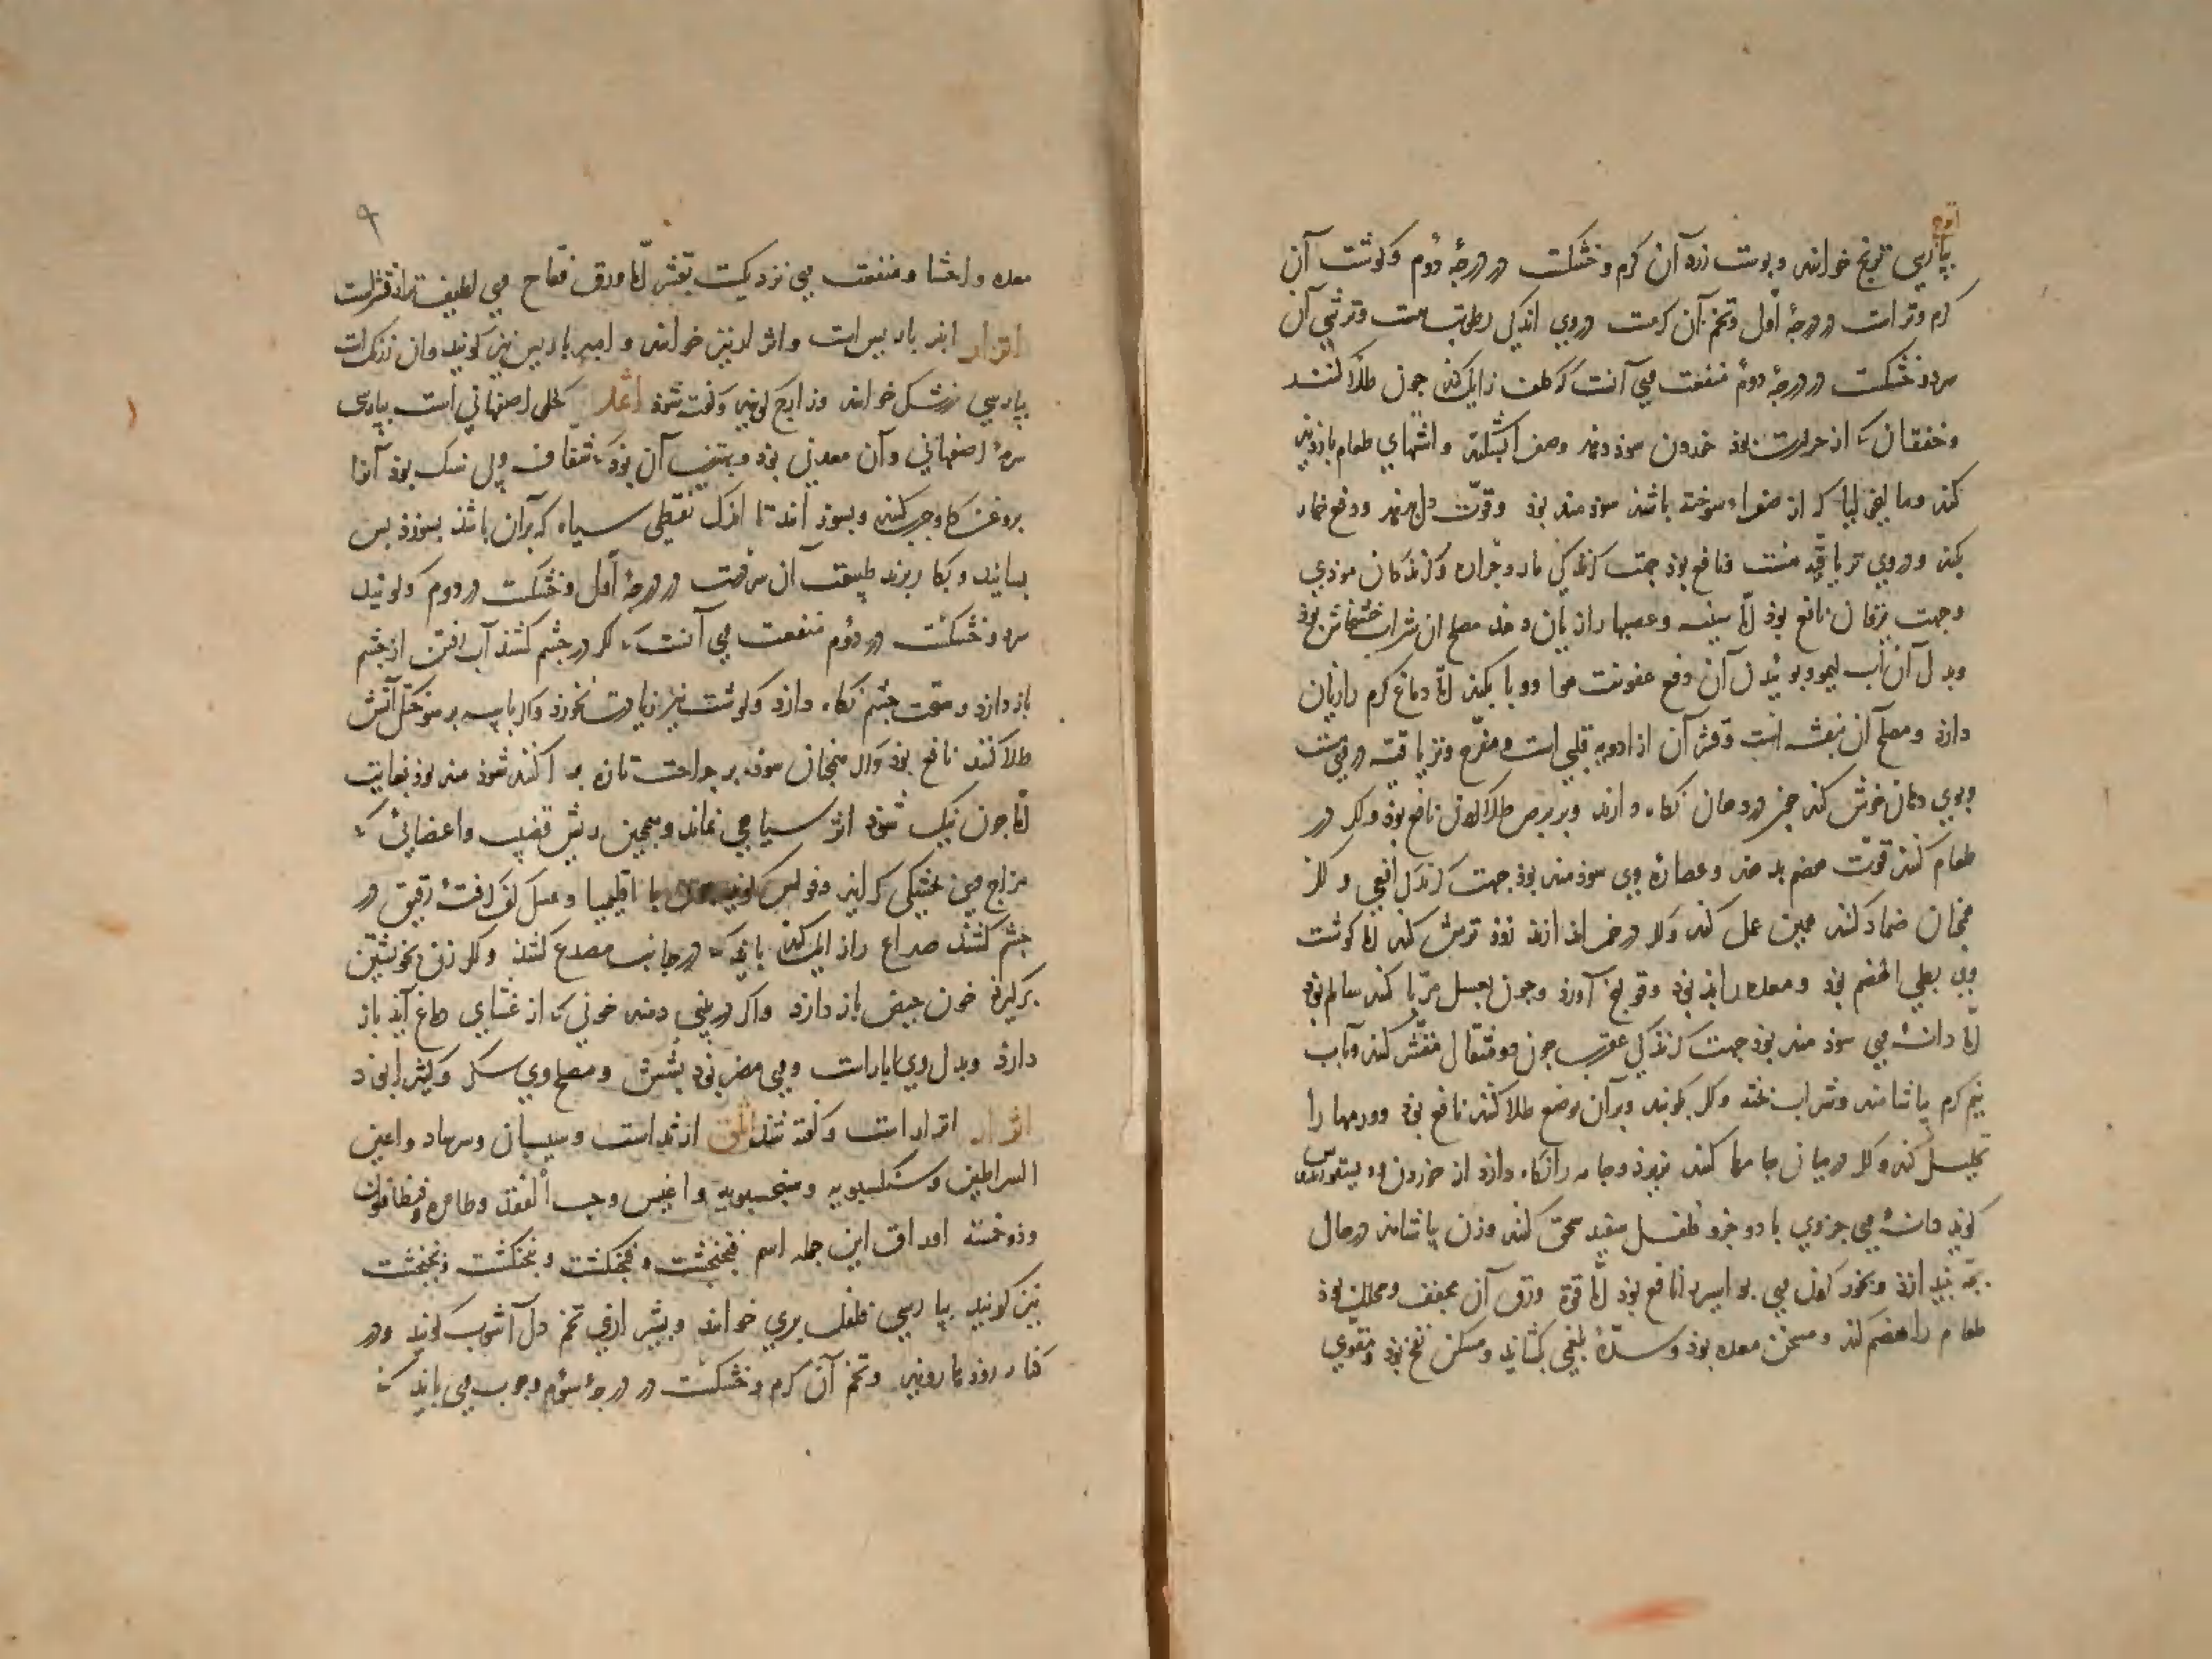 اترج
بپارسی ترنج خوانند و پوست زرد آن گرم و خشکست در درجهٔ دوم و گوشت آن
گرم و تر است در درجهٔ اول و تخم آن گرمست و در وی اندکی رطوبت هست و ترشی آن
سرد و خشکست در درجهٔ دوم منفعت وی آنست که کلف زایل کند چون طلا کنند
و خفقان که از حرارت بوذ خوردن سوذ دهد و صفرا بشکند و اشتهای طعام بازدید
کند و مالیخولیا که از صفراء سوخته باشد سوذمند بوذ و قوت دل بدهد و دفع خمار
بکند و در وی تریاقیه هست و نافع بوذ جهت گزندگی مار و جراره و گزندگان موذی
و جهت یرقان نافع بوذ اما سینه و عصبها را زیان دهد مصلح آن شراب خشخاش بوذ
و بدل آن آب لیمو و بوئیدن آن دفع عفونت هوا و وبا بکند اما دماغ گرم را زیان
دارذ و مصلح آن بنفشه است و قشر آن از ادویه قلبی است و مفرح و تریاقیه در وی هست
و بوی دهان خوش کند چون در دهان نگاه دارند و بر برص طلا کردن نافع بوذ و اگر در
طعام کنند قوت هضم بدهد و عصارهٔ وی سوذمند بوذ جهت گزیدگی افعی و اگر
همچنان ضماد کنند همین عمل کند و اگر در خمر اندازند زوذ ترش کند اما گوشت
وی بطی الهضم بوذ و معده را بد بوذ و قولنج آورذ و چون بعسل مربا کنند سالم بوذ
اما دانهٔ وی سوذمند بوذ جهت گزندگی عقرب چون دو مثقال مقشر کنند و بآب
نیم گرم بیاشامند و شراب پخته و اگر بکوبند و بر آن موضع طلا کنند نافع بوذ و ورمها را
تحلیل کند و اگر در میان جامها کنند نریزد و جامه را نگاه دارذ از خوردن و دیسقوریدوس
گوید دانهٔ وی جزوی با دو جزو فلفل سفید سحق کنند و زن بیاشامد در حال
بچه بیندازد و بخور کردن وی بواسیر را نافع بوذ اما قوة ورق آن مجفف و محلل بوذ
طعام را هضم کند و مسخن معده بوذ و سدهٔ بلغمی بگشاید و مسکن نفخ بوذ و مقوی
۹
معده و احشا و منفعت وی نزدیکست بقشر اما ورق فقاح وی لطیف‌تر از قشر است
اترار انبرباریس است و اثرار نیز خوانند و امیرباریس نیز گویند و آن زرکست
بپارسی زرشک خوانند و زارج گویند و گفته شوذ اثمد کحل اصفهانی است بپارسی
سرمهٔ اصفهانی و آن معدنی بوذ و بهترین آن بوذ که شفاف و بی سنگ بوذ آنرا
بروغن گاو چرب کنند و بسوزانند تا اندک نقطی سیاه که بر آن باشد بسوزد پس
بسایند و بکار برند طبیعت آن سردست در درجهٔ اول و خشکست در دوم و گویند
سرد و خشکست در دوم منفعت وی آنست که اگر در چشم کشند آب رفتن از چشم
باز دارد و صحت چشم نگاه دارد و گوشت نیز زیادت بخورد و اگر با پیه بر سوختگی آتش
طلا کنند نافع بوذ و اگر همچنان سوذه بر جراحت تازه پراکنند سوذمند بوذ بغایت
اما چون نیک شوذ اثر سیاهی نماند و همچنین ریش قضیب و اعضائی که
مزاج وی بخشکی گراید و فولس گوید چون با اقلیمیا و عسل کف گرفتهٔ رقیق در
چشم کشند صداع را زایل کند باید که در جانب مصدع کشند و اگر زن بخویشتن
برگیرد خون حیض باز دارد و اگر در بینی دمند خونی که از غشای دماغ آید باز
دارد و بدل وی آبار است و وی مضر بوذ بشش و مصلح وی سکر و کثیرا بوذ
اثرار اترار است و گفته شد اثلق اژنداست و سیسبان و سرساد و اعین
السراطین و سنگسبویه و پنجسبویه و اغیس و حب الفقد و طاهره و فنطافلون
و ذو خمسه اوراق این جمله اسم فنجنگشت و فنجکشت و بنجنگشت و پنجنکشت
نیز گویند بپارسی فلفل بری خوانند و بشیرازی تخم دل آشوب گویند و در
کنار رودها روید و تخم آن گرم و خشکست در درجهٔ سوم و چوب وی باید که